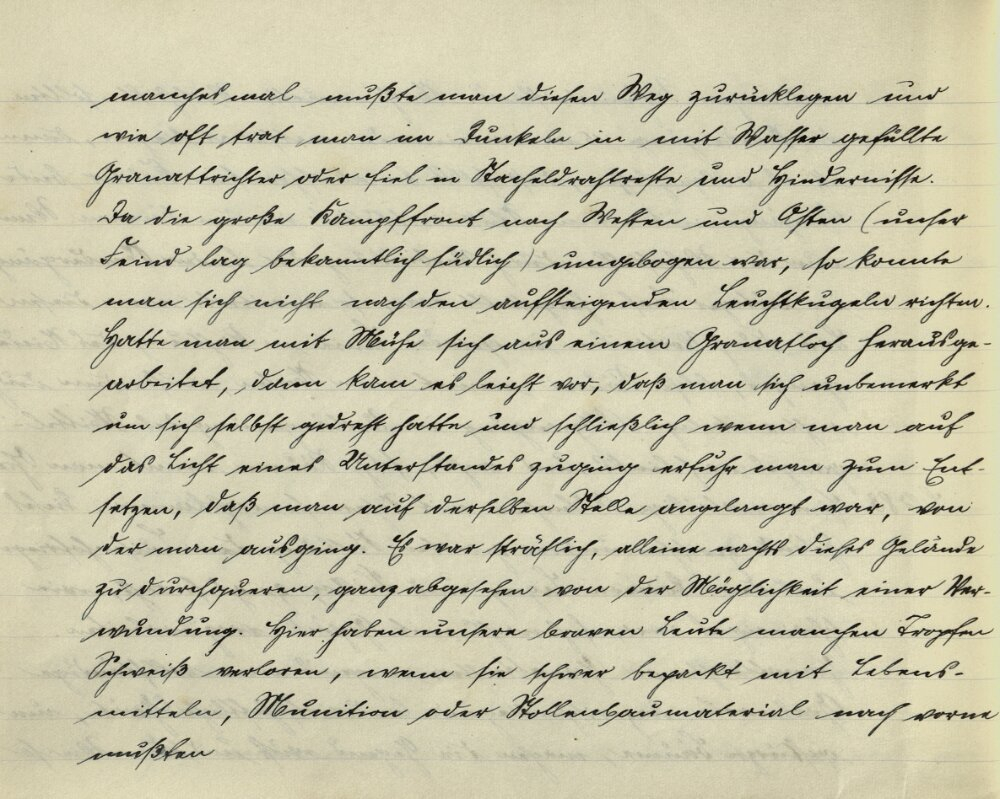 manchesmal mußte man diesen Weg zurücklegen und
wie oft trat man im Dunkeln in mit Wasser gefüllte
Granattrichter oder fiel in Stacheldrahtreste und Hindernisse.
Da die große Kampffront nach Westen und Osten (unser
Feind lag bekanntlich südlich) umgebogen war, so konnte
man sich nicht nach den aufsteigenden Leuchtkugeln richten.
Hatte man mit Mühe sich aus einem Granatloch herausge-
arbeitet, dann kam es leicht vor, daß man sich unbemerkt
um sich selbst gedreht hatte und schließlich wenn man auf
das Licht eines Unterstandes zuging erfuhr man zum Ent-
setzen, daß man auf derselben Stelle angelangt war, von
der man ausging. Es war sträflich, alleine nachts dieses Gelände
zu durchqueren, ganz abgesehen von der Möglichkeit einer Ver-
wundung. Hier haben unsere braven Leute manchen Tropfen
Schweiß verloren, wenn sie schwer bepackt mit Lebens-
mitteln, Munition oder Stollenbaumaterial nach vorne
mußten